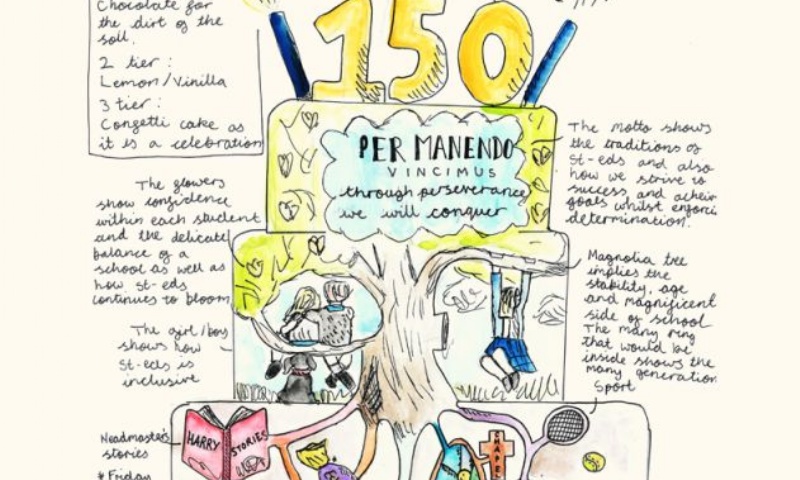 Chocolate for
the dirt of the
soil.
2 tier :
Lemon/Vinilla
3 tier :
Congetti cake as
it is a celebration
150
PER MANENDO
VINCIMUS
through perseverance
we will conquer
The motto shows
the traditions of
St-eds and also
how we strive to
success and
goals whilst
determination.
The flowers
show confidence
within each student
and the delicate
balance of a
school as well as
how St-eds
continues to bloom
Magnolia tree
implies the
stability, age
and magnificent
side of school
The many ring
that would be
inside shows the
many generation
Sport
The girl/boy
shows how
St-eds is
inclusive
Headmaster's
stories
* Friday
HARRY STORIES
CHAPEL